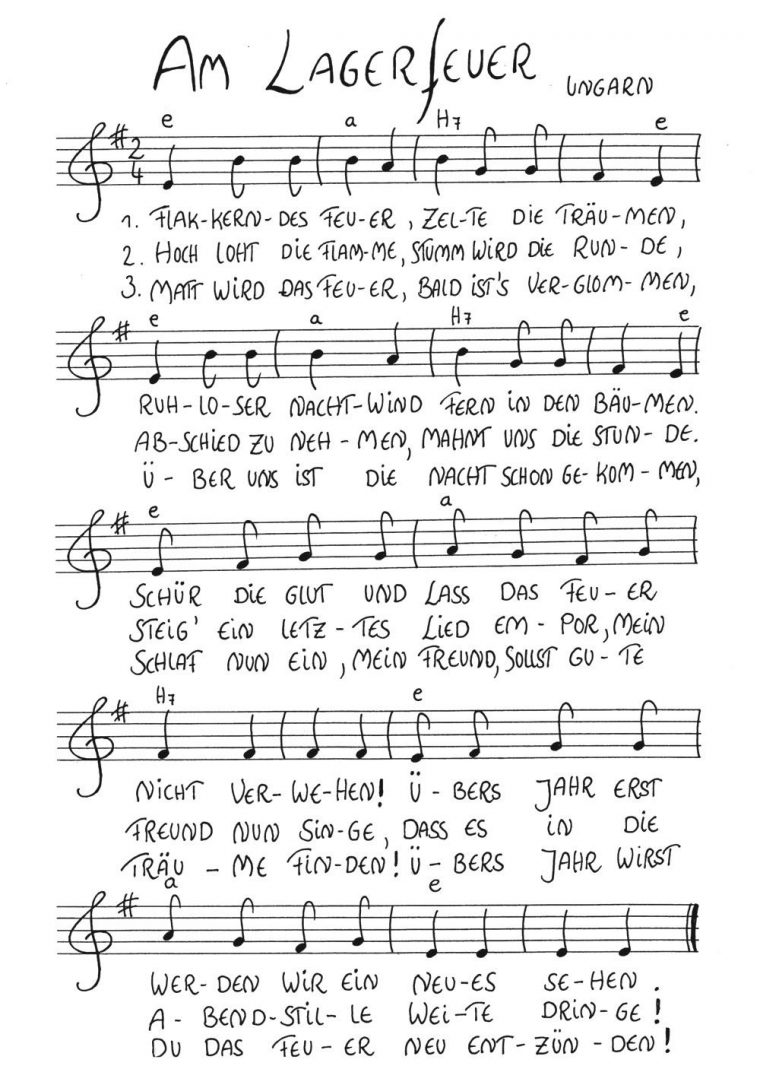 AM LAGERFEUER UNGARN
e a H7 e
2
4
1. FLAK-KERN-DES FEU-ER, ZEL-TE DIE TRÄU-MEN,
2. HOCH LOHT DIE FLAM-ME, STUMM WIRD DIE RUN-DE,
3. MATT WIRD DAS FEU-ER, BALD IST'S VER-GLOM-MEN,
e a H7 e
RUH-LO-SER NACHT-WIND FERN IN DEN BÄU-MEN.
AB-SCHIED ZU NEH-MEN, MAHNT UNS DIE STUN-DE.
Ü-BER UNS IST DIE NACHT SCHON GE-KOM-MEN,
e a
SCHÜR DIE GLUT UND LASS DAS FEU-ER
STEIG' EIN LETZ-TES LIED EM-POR, MEIN
SCHLAF NUN EIN, MEIN FREUND, SOLLST GU-TE
H7 e
NICHT VER-WE-HEN! Ü-BERS JAHR ERST
FREUND NUN SIN-GE, DASS ES IN DIE
TRÄU-ME FIN-DEN! Ü-BERS JAHR WIRST
a e
WER-DEN WIR EIN NEU-ES SE-HEN.
A-BEND-STIL-LE WEI-TE DRIN-GE!
DU DAS FEU-ER NEU ENT-ZÜN-DEN!